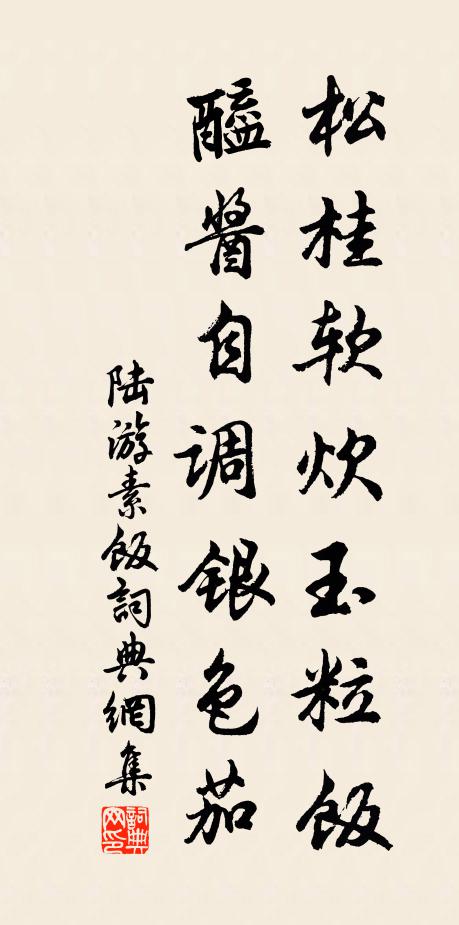 松桂软炊玉粒飯
醯醬自调银色茄
陆游素飯詞典網集
詞典网印